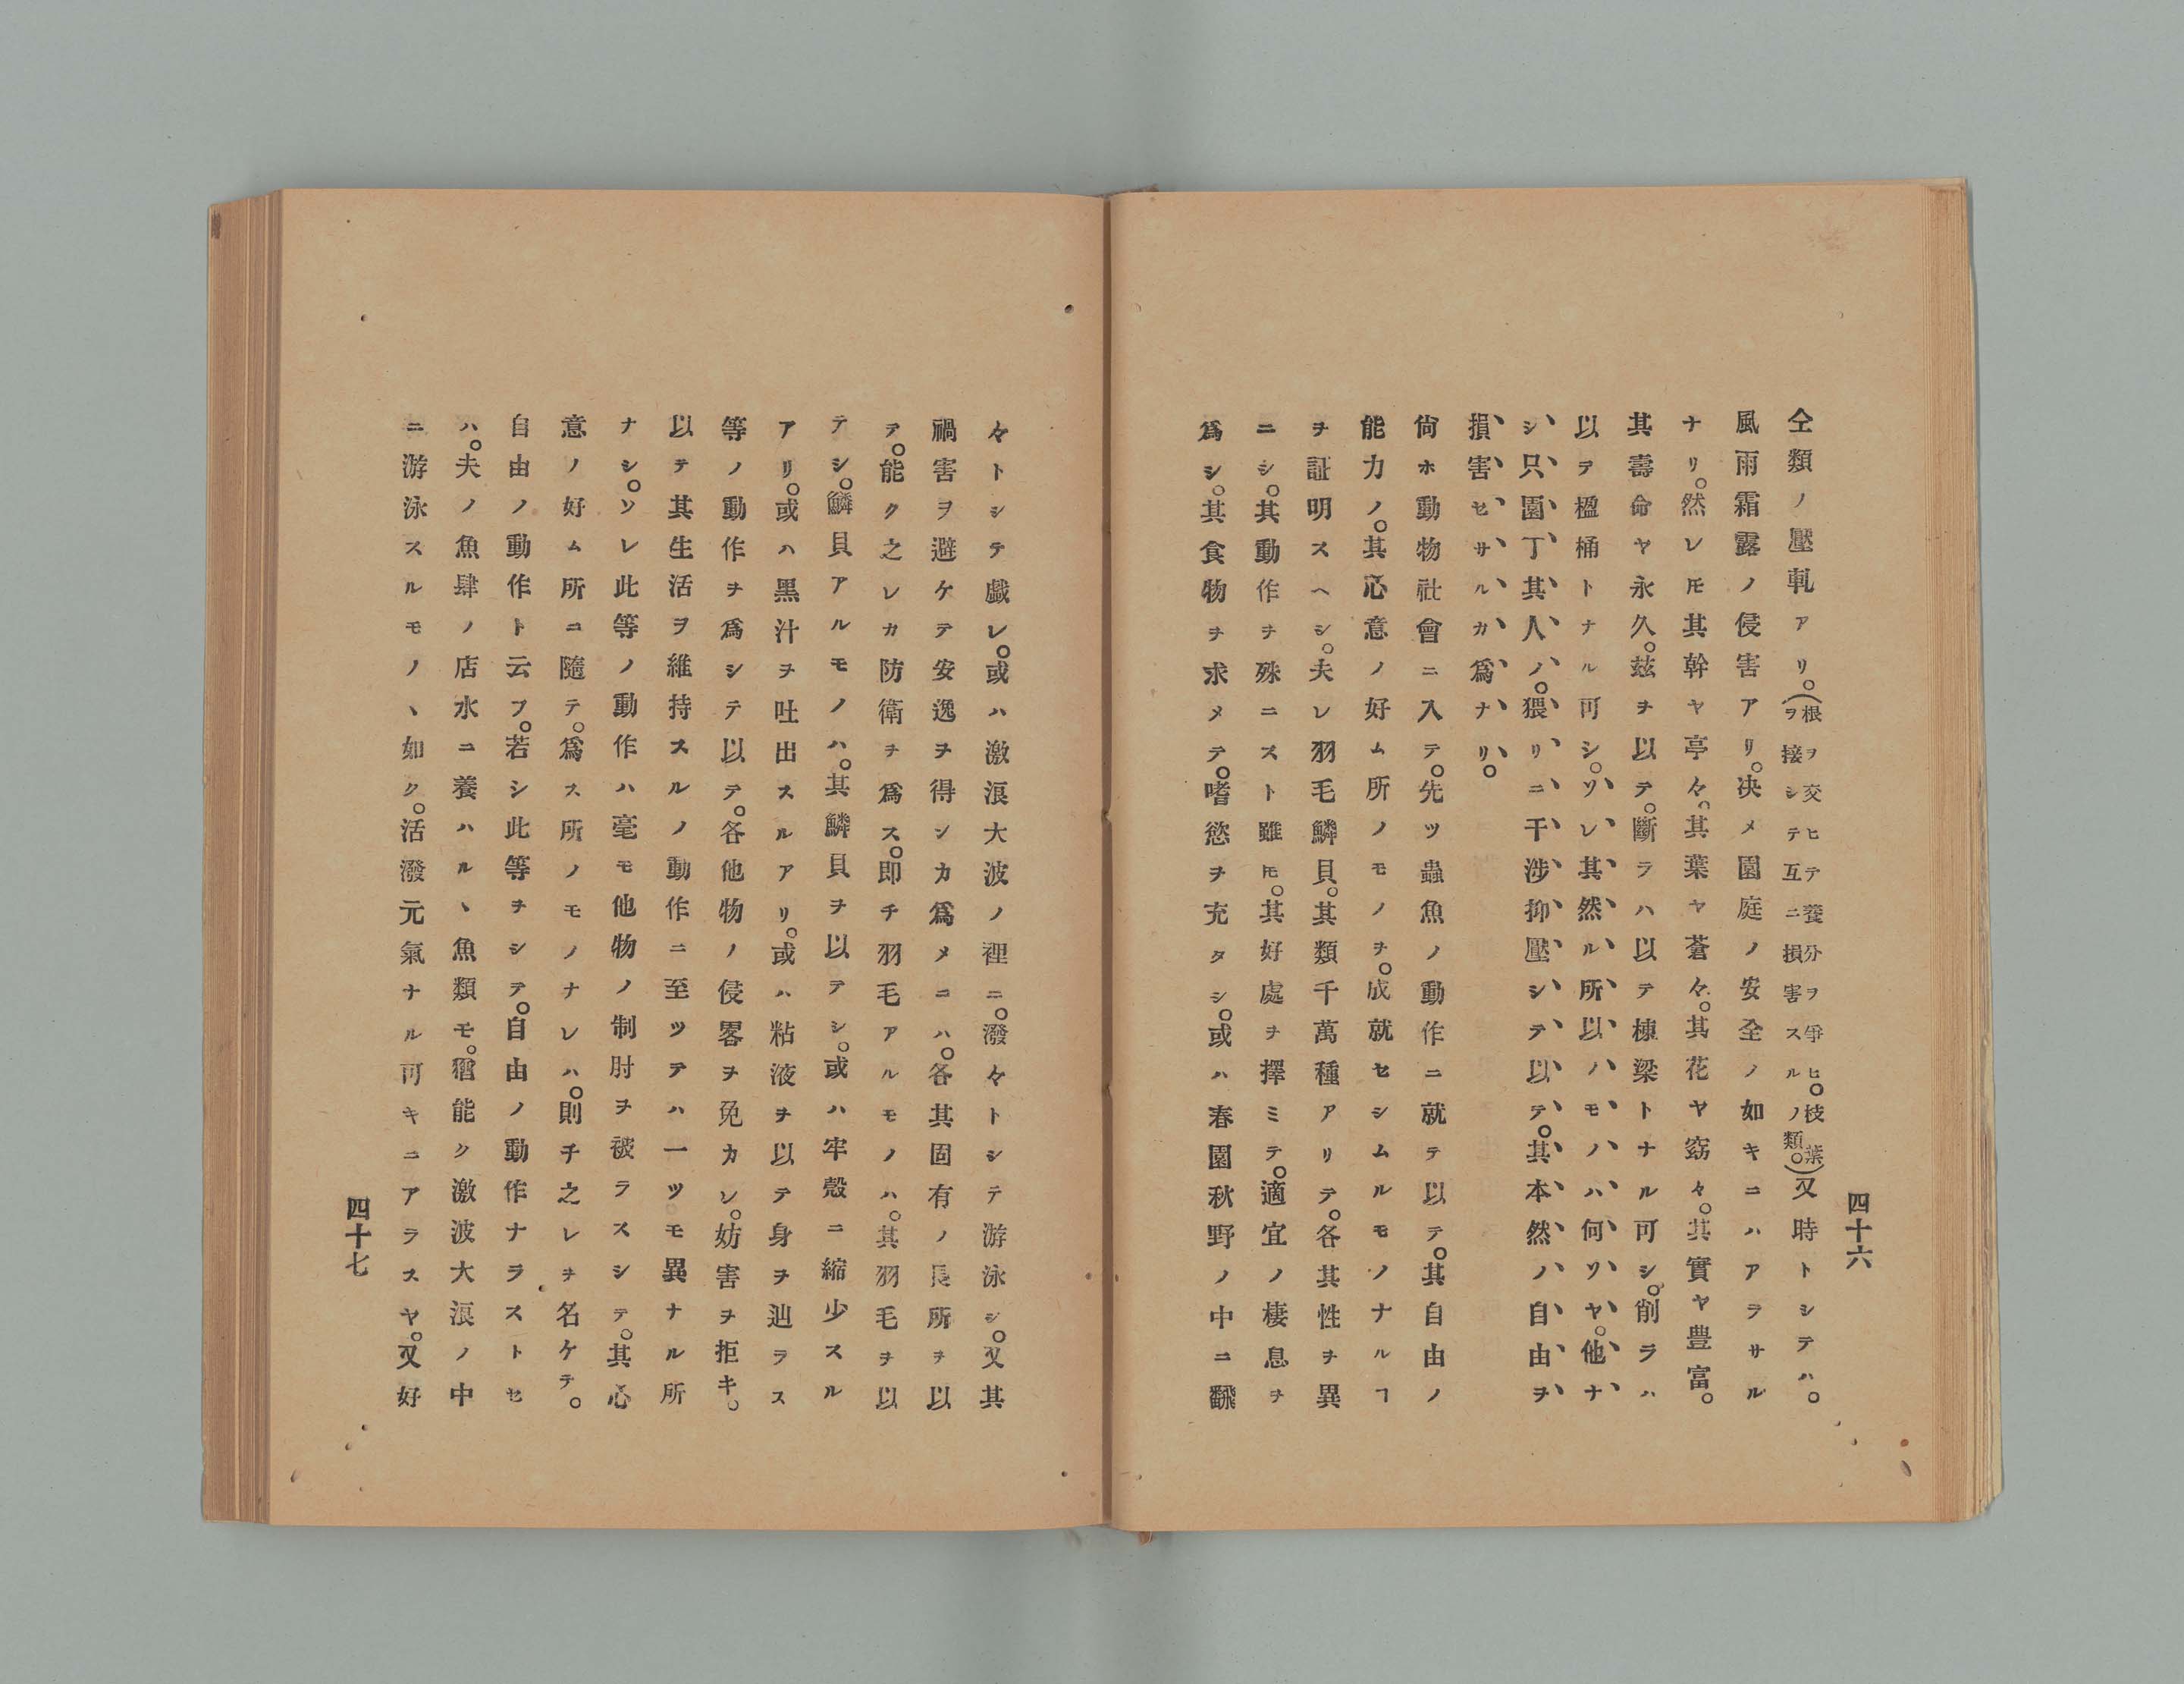 四十六
仝類ノ壓軋アリ。(根ヲ交ヒテ養分ヲ爭ヒ。枝葉ヲ接シテ互ニ損害スルノ類。)又時トシテハ。
風雨霜露ノ侵害アリ。决メ園庭ノ安全ノ如キニハアラサル
ナリ。然レ𪜈其幹ヤ亭々。其葉ヤ蒼々。其花ヤ窈々。其實ヤ豊富。
其壽命ヤ永久。玆ヲ以テ。斷ラハ以テ棟梁トナル可シ。削ラハ
以ヲ楹桶トナル可シ。ソレ其然ル所以ハモノハ何ソヤ。他ナ
シ只園丁其人ノ。猥リニ干涉抑壓シテ以テ。其本然ノ自由ヲ
損害セサルカ爲ナリ。
尙ホ動物社會ニ入テ。先ツ蟲魚ノ動作ニ就テ以テ。其自由ノ
能力ノ。其心意ノ好ム所ノモノヲ。成就セシムルモノナルヿ
ヲ証明スヘシ。夫レ羽毛鱗貝。其類千萬種アリテ。各其性ヲ異
ニシ。其動作ヲ殊ニスト雖𪜈。其好處ヲ擇ミテ。適宜ノ棲息ヲ
爲シ。其食物ヲ求メテ。嗜慾ヲ充タシ。或ハ春園秋野ノ中ニ飜
々トシテ戯レ。或ハ激浪大波ノ裡ニ。潑々トシテ游泳シ。又其
禍害ヲ避ケテ安逸ヲ得シカ爲メニハ。各其固有ノ長所ヲ以
テ。能ク之レカ防衛ヲ爲ス。即チ羽毛アルモノハ。其羽毛ヲ以
テシ。鱗貝アルモノハ。其鱗貝ヲ以テシ。或ハ牢殼ニ縮少スル
アリ。或ハ黑汁ヲ吐出スルアリ。或ハ粘液ヲ以テ身ヲ辷ラス
等ノ動作ヲ爲シテ以テ。各他物ノ侵畧ヲ免カレ。妨害ヲ拒キ。
以テ其生活ヲ維持スルノ動作ニ至ツテハ一ツモ異ナル所
ナシ。ソレ此等ノ動作ハ毫モ他物ノ制肘ヲ被ラスシテ。其心
意ノ好ム所ニ隨テ。爲ス所ノモノナレハ。則チ之レヲ名ケテ。
自由ノ動作ト云フ。若シ此等ヲシテ。自由ノ動作ナラストセ
ハ。夫ノ魚肆ノ店水ニ養ハルヽ魚類モ。猶能ク激波大浪ノ中
ニ游泳スルモノヽ如ク。活潑元氣ナル可キニアラスヤ。又好
四十七